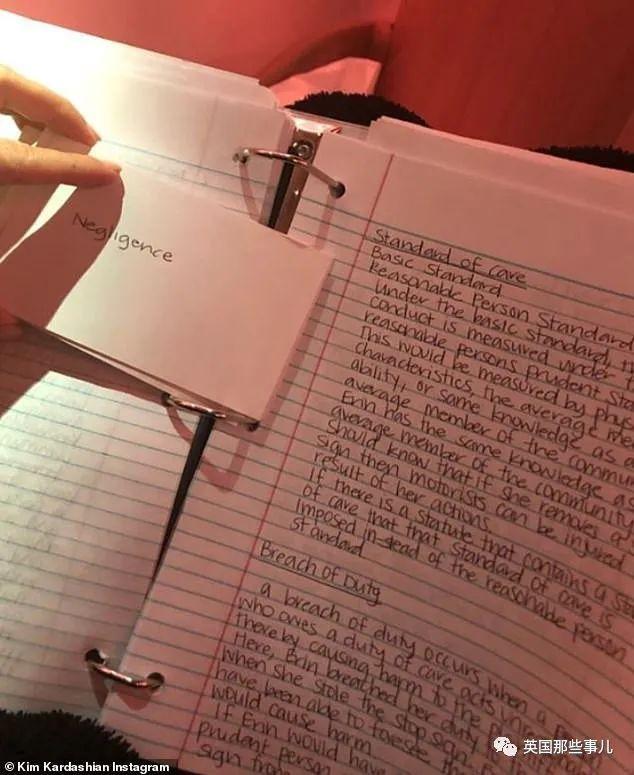 Negligence
Standard of care
Basic Standard
Reasonable Person Standard
under the basic standard, th
conduct is measured under t
reasonable persons prudent Sta
This would be measured by phys
characteristics the average me
ability, or same knowledge as a
average member of the commun
Erin has the same knowledge as
average member of the community
should know that if she removes a
sign then motorists can be injured
result of her actions.
If there is a statute that contains a sta
of care that that standard of care is
imposed instead of the reasonable person
standard
Breach of Duty
a breach of duty occurs when a
who owes a duty of care acts
thereby causing harm to the
Here, Erin breached her duty
when she stole the stop sign
have been able to foresee
would cause harm
If Erin would have
prudent person
sign
英国那些事儿
© Kim Kardashian Instagram